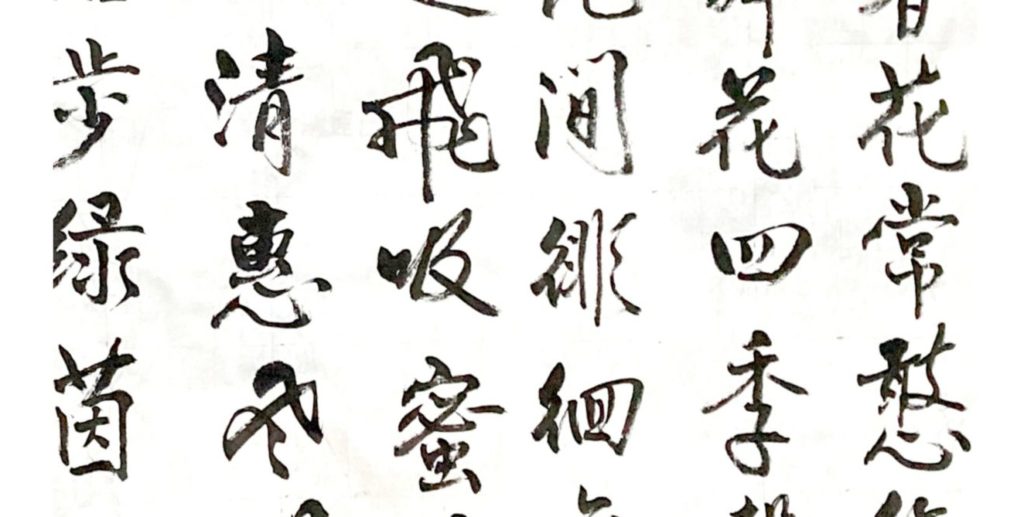 花常憨
花四季
间徘徊
飛吸蜜
清惠冬
步绿茵